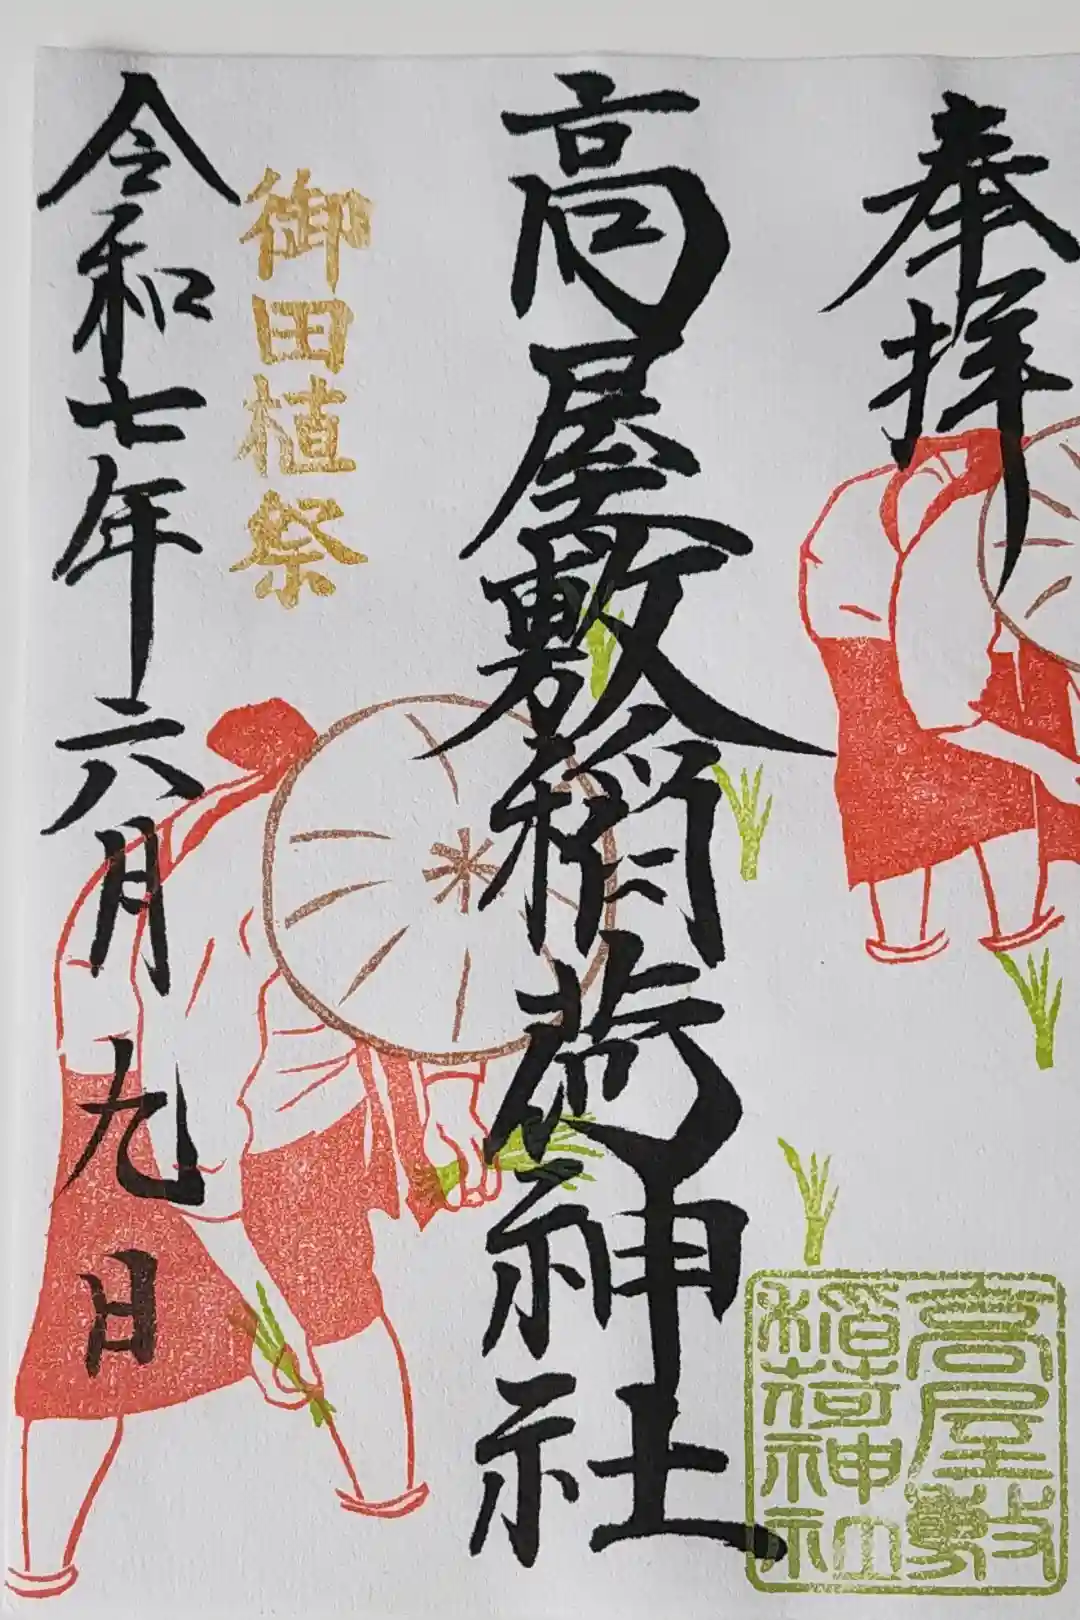 奉拝
高屋敷稲荷神社
御田植祭
令和七年六月九日
高屋敷
稲荷神社